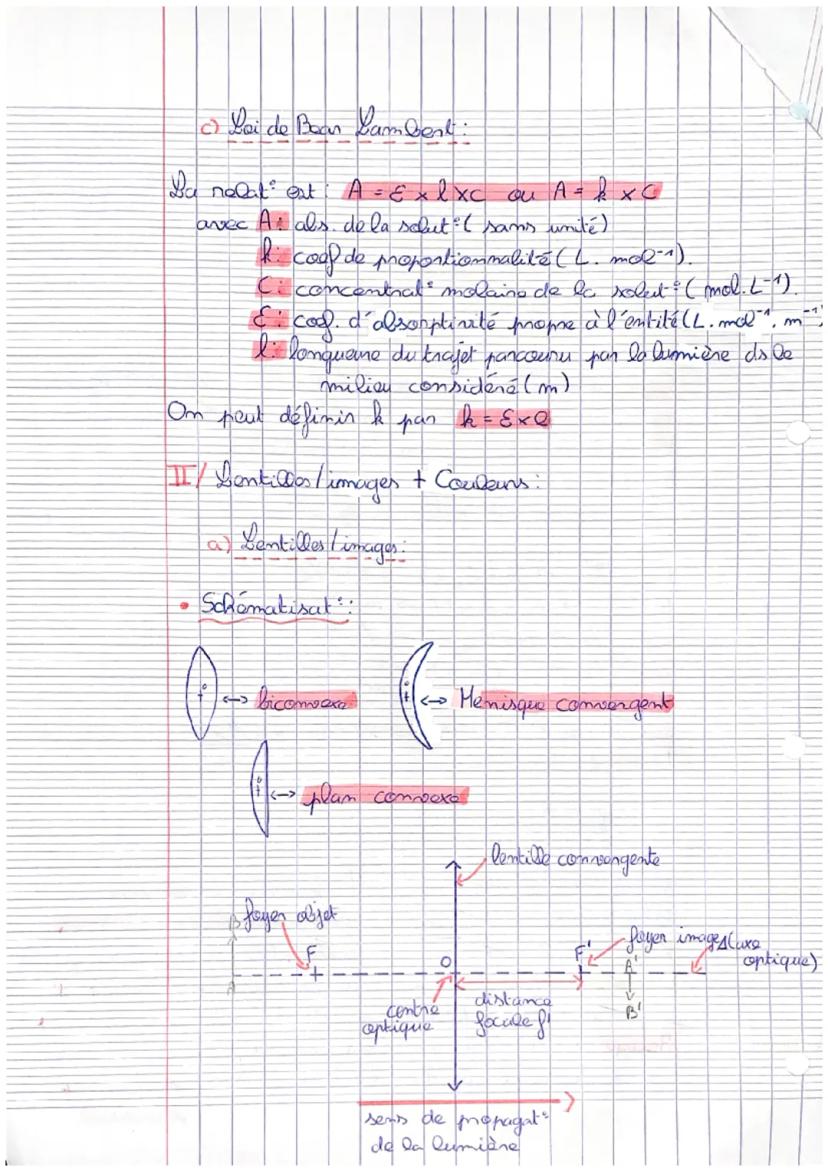 c) Loi de Beer Lambert :
La relat° est : A = ε x l x c ou A = k x C
avec A : abs. de la solut° ( sans unité)
k : coef de proportionnalité ( L. mol⁻¹).
C : concentrat° molaire de la solut° : ( mol. L⁻¹).
ε : coef. d'absorptivité propre à l'entité (L. mol⁻¹. m⁻¹)
l : longueure du trajet parcouru par la lumière ds le
milieu considéré ( m)
On peut définir k par k = ε x l
II/ Lentilles / images + Couleurs :
a) Lentilles / images :
• Schématisat° :
o
+
<-> biconvexe
o
+
<-> Menisque convergent
o
+
<-> plan convexe
lentille convergente
B
foyer objet
F
A
O
centre
optique
distance
focale f'
F'
foyer images
(axe
optique)
A'
B'
sens de propagat°
de la lumière